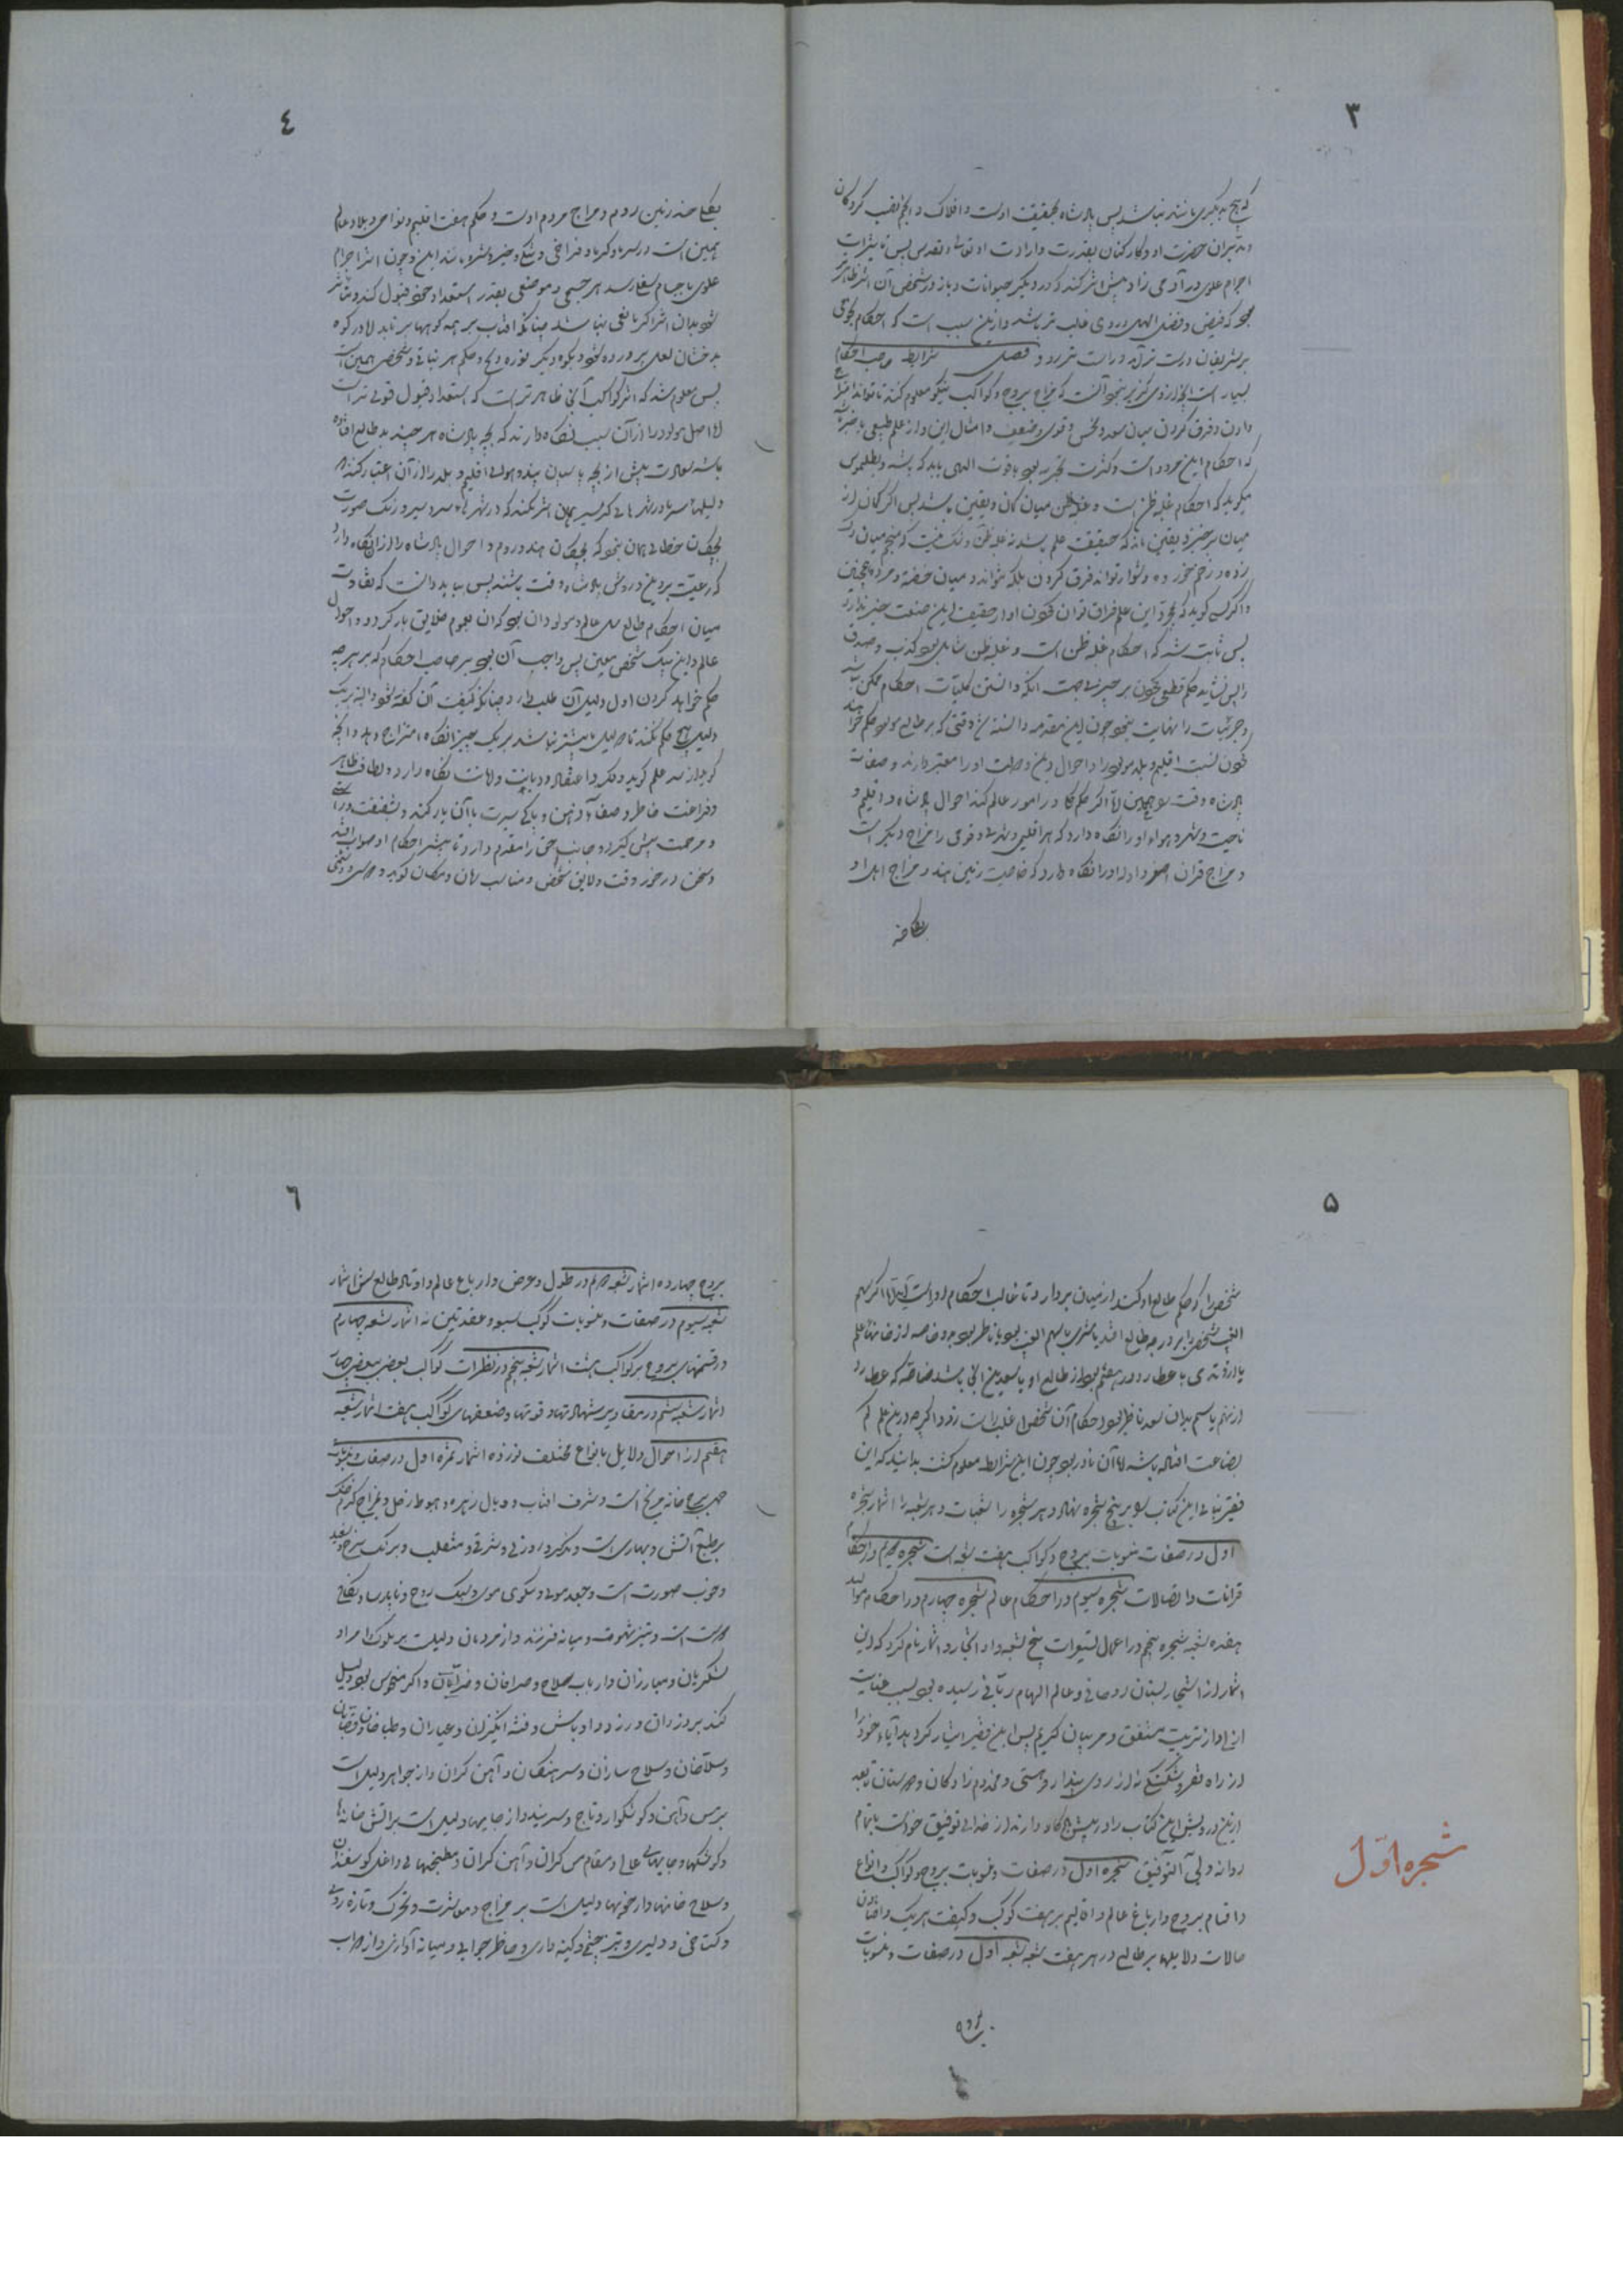 ۳
که هیچ بدیگری مانند نباشد پس پادشاه بحقیقت اوست و افلاک و انجم نقیب کردکان
و مدبران حضرت او و کارکنان بقدرت و ارادت او تعالی و تقدس پس تاثیرات
اجرام علوی در آدمی زاد بیش اثر کند که در دیگر حیوانات و باز در شخص آن اثر ظاهرتر
بود که فیض و فضل الهی در وی غالب تر باشد و ازین سبب است که احکام نجومی
بر شریفان درست تر آید و راست تر رود و فصل شرایط صاحب احکام
بسیار است انچه از وی گزیر نبود آنست که مزاج بروج و کواکب نیکو معلوم کند تا تواند امتزاج
دادن و فرق کردن میان سعد و نحس و قوی و ضعیف و امثال این و از علم طبیعی با خبر
که احکام این مرد است و کثرت تجربه بود با قوت الهی باید که باشد و بطلمیوس
میگوید که احکام غلبه ظن است و غلبه ظن میان گمان و یقین باشد پس اگر گمان از
میان برخیزد یقین ماند که حقیقت علم باشد نه غلبه ظن و شک نیست که منجم میان
زده و زخم خورده دشوار تواند فرق کردن بلکه نتواند و میان خفته و مرده همچنین
و اگر کسی گوید که بمجرد این علم فرق توان کردن او از حقیقت این صنعت خبر ندارد
پس ثابت شد که احکام غلبه ظن است و غلبه ظن شامل بود کذب و صدق
را پس نشاید حکم قطعی کردن بر چیزی جهت آنکه دانستن کلیات احکام ممکن باشد
و جزئیات را نهایت نبود چون این مقدمه دانسته شد وقتی که بر طالع مولود حکم خواهند
کردن نسبت اقلیم و بلد مولود را و احوال دین و ملت او را معتبر دارند و صفات
پادشاه وقت همچنین الا اگر حکم در امور عالم کند احوال پادشاه و اقلیم و
ناحیت و شهر و هواء او را نگاه دارد که هر اقلیمی و شهری و قومی را مزاج دیگر است
و مزاج قران اصغر و ادوار او را نگاه دارد که خاصیت زمین هند و مزاج اهل او
بکلی ضد
٤
بکلی ضد زمین روم و مزاج مردم اوست و حکم هفت اقلیم و نواحی و بلاد عالم
همین است در سرما و گرما و فراخی و تنگی و خیر و شر و مانند این و چون اثر اجرام
علوی باجسام سفلی رسد هر جسمی و موضعی بقدر استعداد خود قبول کند و متاثر
شود بدان اثر اگر مانعی نباشد چنانکه آفتاب بر همه کوهها بر تابد الا در کوه
بدخشان لعل پرورده شود و بکوه دیگر نوره و گچ و حکم هر نباتی و شخصی همین است
پس معلوم شد که اثر کواکب آنجا ظاهرتر است که استعداد قبول قوی تر است
الا اصل مولود را از آن سبب نگاه دارند که بچه پادشاه هر چند بد طالع افتاده
باشد سعادت بیش از بچه پاسبان بیند و هوای اقلیم و بلد را از آن اعتبار کنند
دلیلها سرما در شهرهای گرمسیر همان اثر نکند که در شهرهای سردسیر و رنگ صورت
بچگان خطائی همان نبود که بچگان هند و روم و احوال پادشاه را از ان نگاه دارد
که رعیت بر دین و روش پادشاه وقت باشند پس بباید دانست که تفاوت
میان احکام طالع سال عالم و مولود آن بود که آن بعموم خلایق باز گردد و احوال
عالم و این بیک شخص معین پس واجب آن بود بر صاحب احکام که بر هر چه
حکم خواهد کردن اول دلیل آن طلب دارد چنانکه کیفیت آن گفته شود و البته بیک
دلیل هیچ حکم نکند تا دلیل بیشتر نباشد بر یک چیز آنگاه امتزاج دهد و آنچه
گوید از سر علم گوید و نیک و اعتقاد و دیانت و امانت نگاه دارد و لطافت ظاهر
و فراغت خاطر و صفاء ذهن و پاکی سیرت با آن یار کند و شفقت و راستی
و مرحمت پیش گیرد و جانب حق را مقدم دارد تا بیشتر احکام او صواب افتد
و سخن در خور وقت و لایق شخص و مناسب زمان و مکان گوید و دوستی و دشمنی
۵
شخصی را که حکم طالع او کند از میان بردارد تا غالب احکام او راست آید الا اگر سهم
الغیب شخصی را بر درجه طالع افتد یا مشتری با سهم الغیب بود یا ناظر بود بدو خاصه از خانهاء علم
یا در وتدی با عطارد در هفتم بود از طالع او یا سعدین آنجا باشد خاصه که عطارد
از نهم یا سیم بدان سعد ناظر شود احکام آن شخص اغلب راست رود اگرچه درین علم کم
بضاعت افتاده باشد الا آن نادر بود چون این شرایط معلوم گشت بدانید که این
فقیر بنای این کتاب بر پنج شجره نهاد و هر شجره را شعبات و هر شعبه را اثمار شجره
اول در صفات منسوبات بروج و کواکب هفت شعبه است شجره دویم در احکام
قرانات و اتصالات شجره سیوم در احکام عالم شجره چهارم در احکام موالید
هفده شعبه شجره پنجم در اعمال تسییرات پنج شعبه و او اشجار و اثمار نام کرد که این
اثمار از اشجار بستان روحانی و عالم الهام ربانی رسیده بود بسبب عنایت
ازلی و از تربیت مشفق و مربیان کریم پس این فقیر ایثار کرد بدایاء خود را
از راه فقر و شکستگی نه از روی پندار و هستی و مخدوم زادگان و دوستان
ازین درویش این کتاب را در پیش نگاه دارند از خدای توفیق خواست باتمام
رواند ولی التوفیق شجره اول در صفات و منسوبات بروج و کواکب و انواع
و اقسام بروج و ارباع عالم و اقالیم بر هفت کوکب و کیفیت هر یک و
حالات و دلایلها بر طالع در هر هفت شعبه شعبه اول در صفات و منسوبات
شجره اول
بروج
٦
بروج چهارده اثمار شعبه دویم در طول و عرض و ارباع عالم و اوتاد طالع شش اثمار
شعبه سیوم در صفات و منسوبات کواکب سبعه و عقدتین نه اثمار شعبه چهارم
در قسمتهای بروج بر کواکب هشت اثمار شعبه پنجم در نظرات کواکب بعضی ببعضی چهار
اثمار شعبه ششم در مقادیر شهادتها و قوتها و ضعفهای کواکب هفت اثمار شعبه
هفتم از احوال دلایل بانواع مختلف نوزده اثمار ثمره اول در صفات و منسوبات
حمل برج خانه مریخ است و شرف آفتاب و وبال زهره و هبوط زحل و مزاج گرم و خشک
بر طبع آتش و بهاری است و مذکر و روزی و شرقی و منقلب و برنگ سرخ
و خوب صورت است و جعد موی و میگون موی و نیک روح و
است و تیز شهوت و میانه فرزند و از مردمان دلیلست بر ملوک و امراء
لشکریان و مبارزان و ارباب سلاح و صرافان و ضرابان و اگر منحوس بود دلیل
کند بر دزدان و رزد و اوباش و فتنه انگیزان و عیاران و طباخان و قصابان
و سلاخان و سلاح سازان و سرهنگان و آهن گران و از جواهر دلیل است
بر مس و آهن و گوشوار و تاج و سربند و از جایها دلیل است بر آتش خانها
و کوشکها و جایهای عالی و مقام مس گران و آهن گران و مطبخها و داغل گوسفندان
و سلاح خانها و از خویها دلیل است بر مزاج و معاشرت و تحرک و تازه روئی
و گستاخی و دلیری و تیز خشمی و کینه داری و حاضر جوابی و میانه آوازی و از دواب